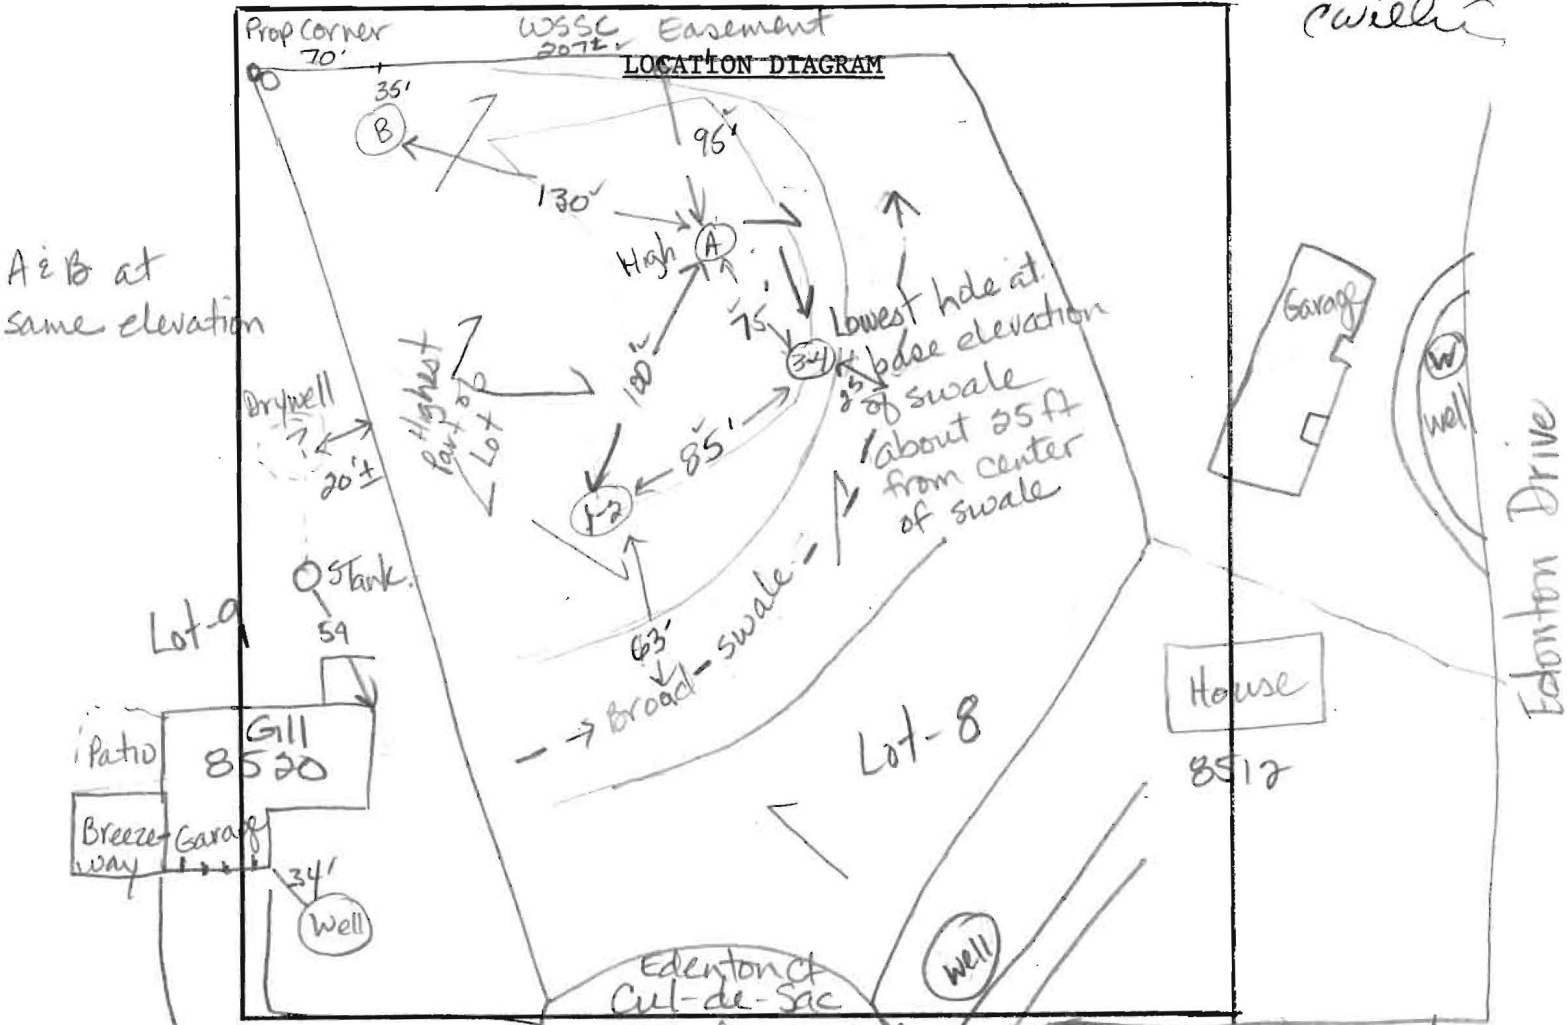 Prop Corner
WSSC Easement
70'
207±
LOCATION DIAGRAM
35'
B
95'
130'
A
High
A & B at
same elevation
75'
Lowest hole at
base elevation
of swale
about 25 ft
from center
of swale
3-4
25
100'
85'
1-2
Highest
Part of
Lot
Drywell
20'±
STank.
59
Lot-9
63'
Broad - swale -
Lot-8
Gill
8520
Patio
Breeze-
way
Garage
34'
Well
Edenton Ct
Cul-de-Sac
Well
House
8512
Garage
W
Well
Edonton Drive